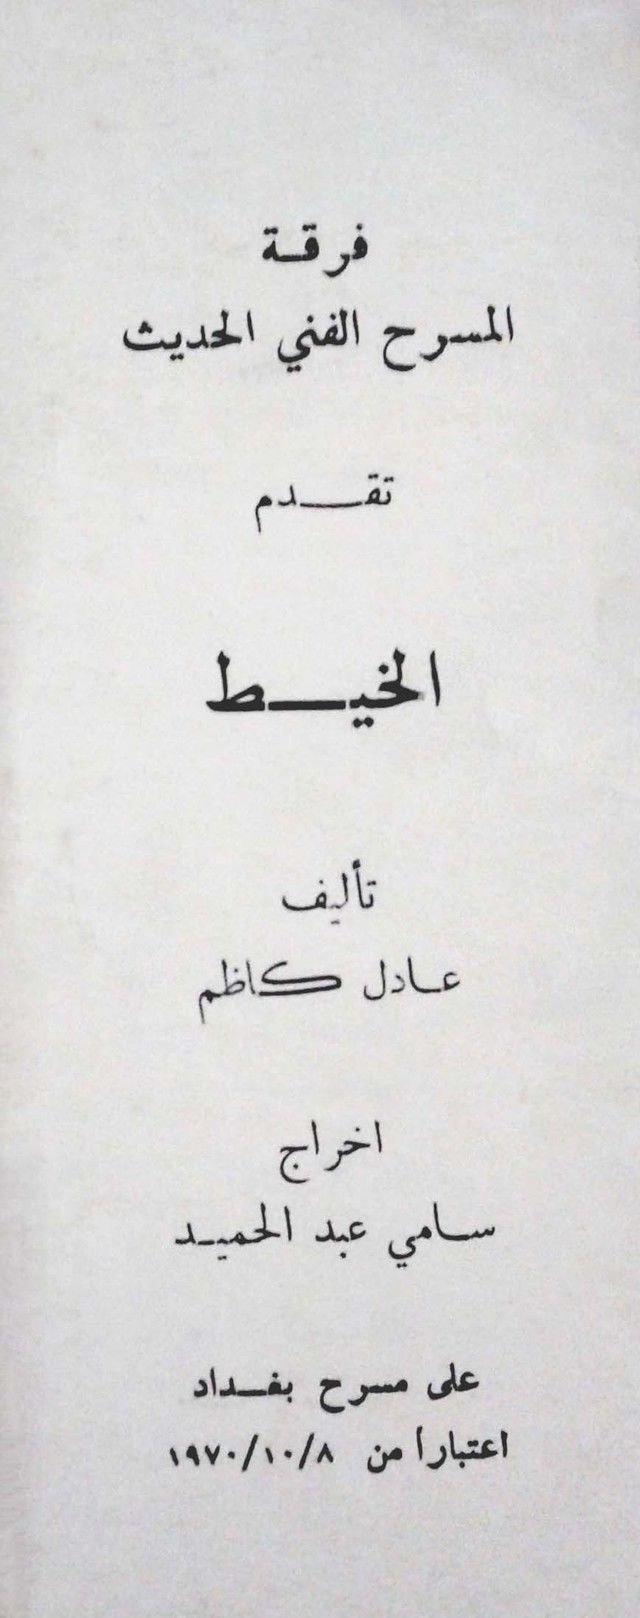 فرقة
المسرح الفني الحديث
تقدم
الخيط
تأليف
عادل كاظم
اخراج
سامي عبد الحميد
على مسرح بغداد
اعتباراً من ١٩٧٠/١٠/٨